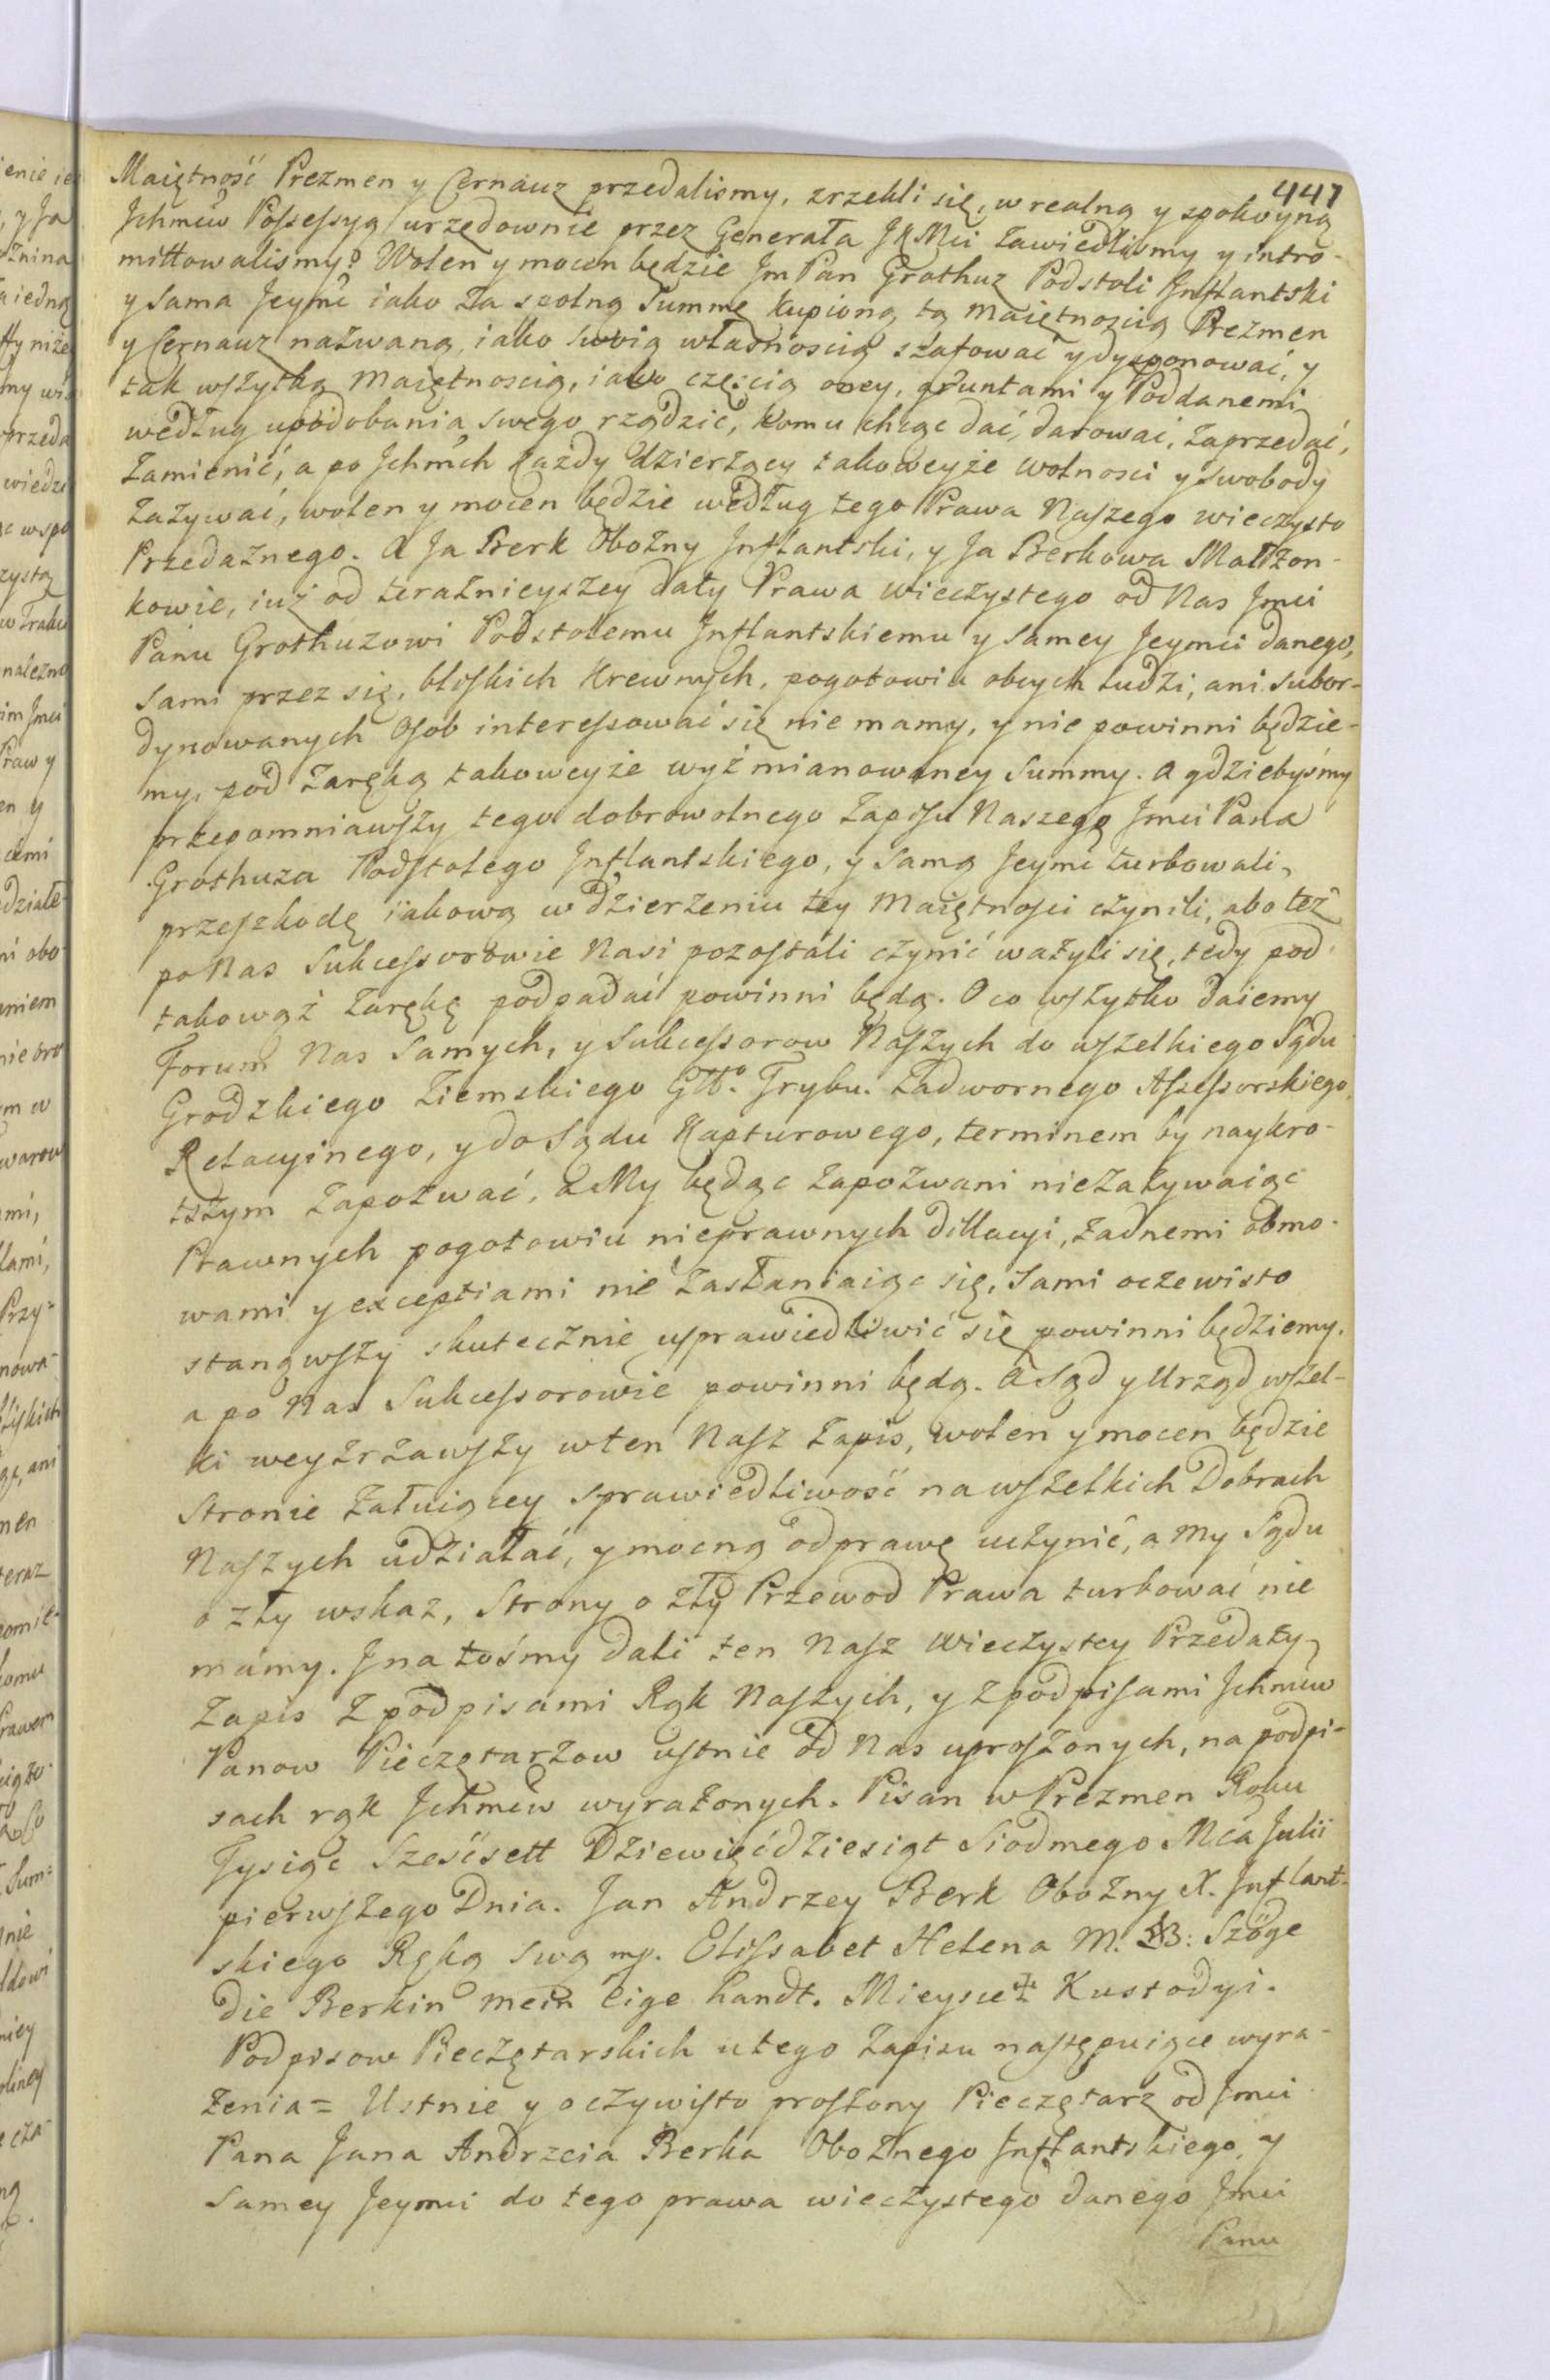 447
Maiętność Prezmen y Cernauz przedalismy, zrzekli się, w realną y spokoyną
Jchmćiw Possessyą urzędownie przez Generała JKMći zawiedlismy y intro-
mittowalismy? Wolen y mocen będzie Jm Pan Grothuz Podstoli Jnflantski
y sama Jeymć iako za spolną Summę kupioną tą maiętnoscią Prezmen
y Cernauz nazwaną, iako swoią własnoscią szafować y dysponować, y
tak wszytką maiętnoscią, iako częścią oney, gruntami y Poddanemi
według upodobania swego rządzić, komu chcąc dać, darować, zaprzedać,
zamienić, a po Jchmćh każdy dzierżący takoweyże wolnosci y swobody
zażywać, wolen y mocen będzie według tego Prawa Naszego wieczysto
Przedażnego. A Ja Berk Obozny Jnflantski, y Ja Berkowa Małżon-
kowie, iuż od teraźnieyszey daty Prawa wieczystego od Nas Jmći
Panu Grothuzowi Podstolemu Jnflantskiemu y samey Jeymći danego,
sami przez się, bliskich Krewnych, pogotowiu obcych ludzi, ani subor-
dynowanych Osob interessować się nie mamy, y nie powinni będzie-
my, pod zaręką takoweyże wyż mianowaney Summy. A gdziebyśmy
przepomniawszy tego dobrowolnego Zapisu Naszego Jmći Pana
Grothuza Podstolego Jnflantskiego, y samą Jeymć turbowali,
przeszkodę iakową w dzierzeniu tey Maiętnosci czynili, abo też
po Nas Sukcessorowie Nasi pozostali czynić ważyli się, tedy pod
takowąż zarękę podpadać powinni będą. O co wszytko daiemy
Forum Nas samych, y Sukcessorow Naszych do wszelkiego Sądu
Grodzkiego Ziemskiego Gło. Trybu. Zadwornego Assessorskiego,
Relacyinego, y do Sądu Kapturowego, terminem by naykro-
tszym zapozwać, a My będąc zapozwani niezażywaiąc
Prawnych pogotowiu nieprawnych dillacyi, żadnemi obmo-
wami y exceptiami nie zasłaniaiąc się, sami oczewisto
stanąwszy skutecznie usprawiedliwić się powinni będziemy.
a po Nas Sukcessorowie powinni będą. A Sąd y Urząd wszel-
ki weyzrzawszy w ten Nasz Zapis, wolen y mocen będzie
Stronie żałuiącey sprawiedliwość na wszelkich Dobrach
Naszych udziałać, y mocną odprawę uczynić, a my Sądu
o zły wskaz, Strony o zły Przewod Prawa turbować nie
mamy. J na tośmy dali ten Nasz Wieczystey Przedaży
Zapis z podpisami Rąk Naszych, y z podpisami Jchmćiw
Panow Pieczętarzow ustnie od Nas uproszonych, na podpi-
sach rąk Jchmćiw wyrażonych. Pisan w Prezmen Roku
Tysiąc Sześćsett Dziewięćdziesiąt Siodmego Mca Julii
pierwszego Dnia. Jan Andrzey Berk Obozny X. Jnflant-
skiego Ręką swą mp. Elissabet Helena M. B: Szöge
die Berkin mein eige handt. Mieysce Kustodyi.
Podpisow Pieczętarskich u tego Zapisu następuiące wyra-
żenia = Ustnie y oczywisto proszony Pieczętarz od Jmći
Pana Jana Andrzeia Berka Oboznego Jnflantskiego, y
samey Jeymći do tego prawa wieczystego danego Jmći
Panu